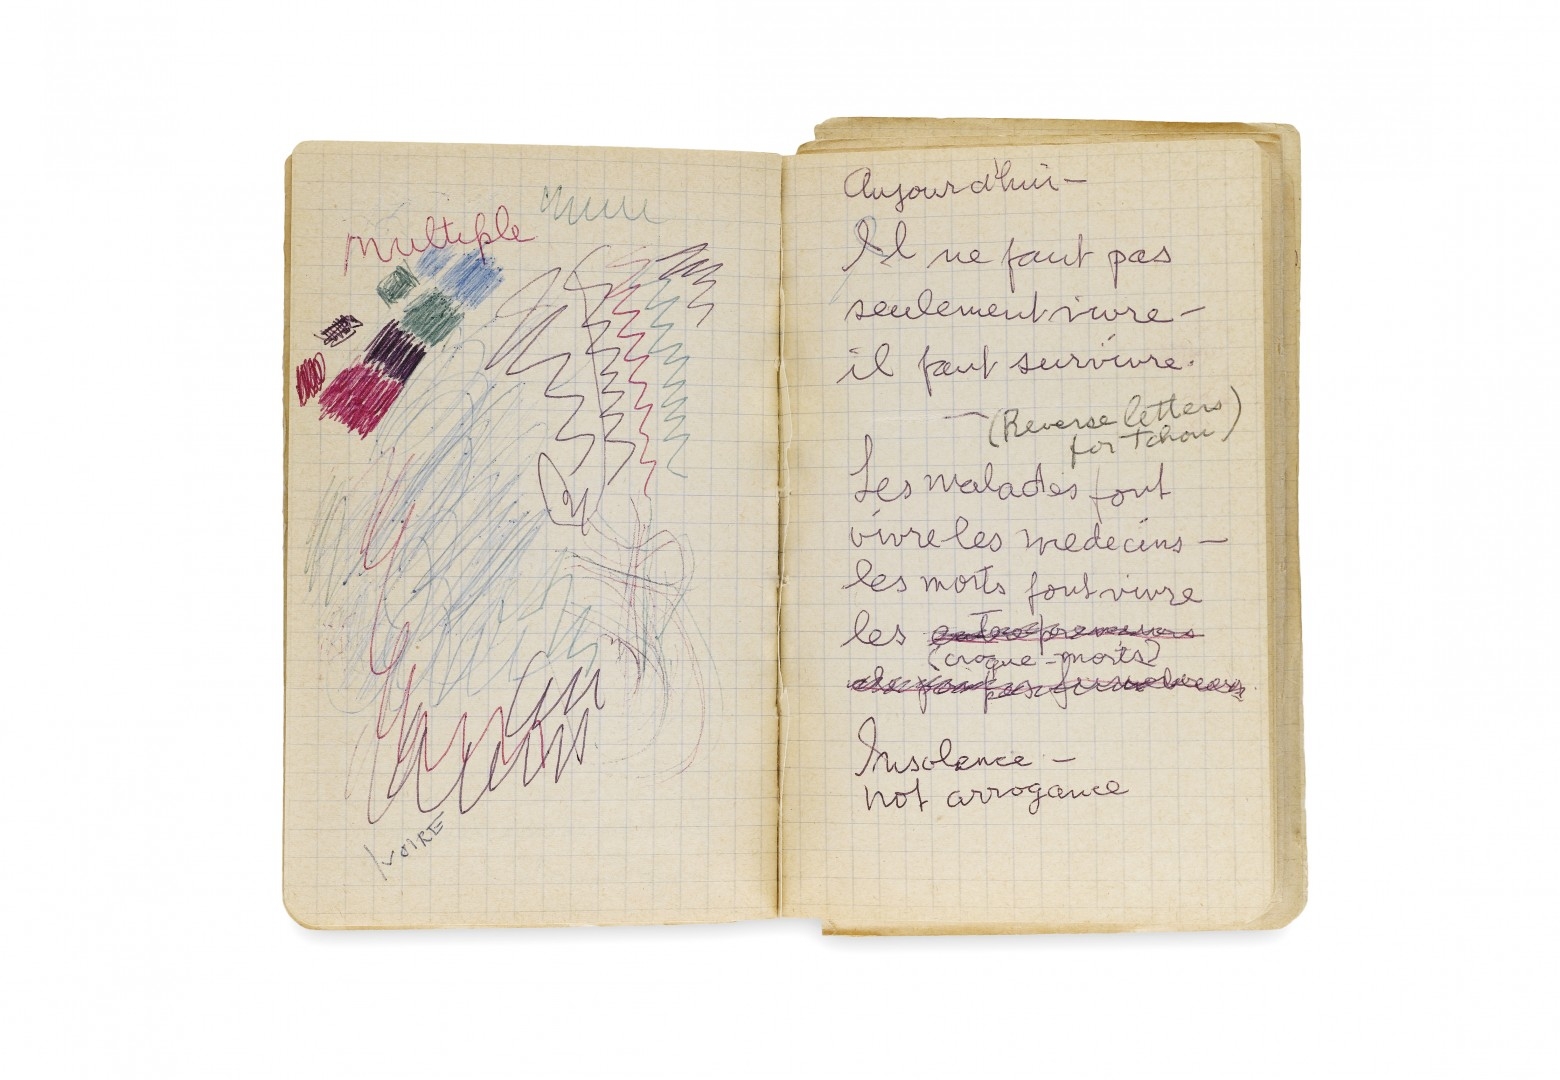 multiple
IVOIRE
Aujourd'hui —
Il ne faut pas
seulement vivre —
il faut survivre.
— (Reverse letters
for Tchou)
Les malades font
vivre les medecins —
les morts font vivre
les
(croque-morts)
Insolence —
not arrogance